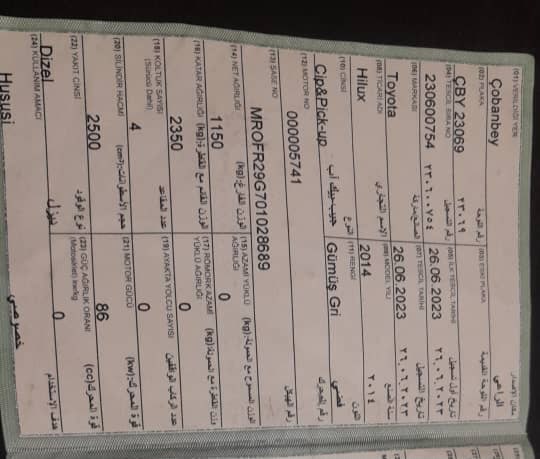 (01) VERİLDİĞİ YER مكان الاصدار
Çobanbey الراعي
(02) PLAKA رقم اللوحة (03) ESKİ PLAKA رقم اللوحة القديمة
CBY 23069 ٢٣٠٦٩
(04) TESCİL SIRA NO رقم التسجيل (05) İLK TESCİL TARİHİ تاريخ أول تسجيل
230600754 ٢٣٠٦٠٠٧٥٤ 26.06.2023 ٢٦.٠٦.٢٠٢٣
(06) MARKASI (07) TESCİL TARİHİ تاريخ التسجيل
Toyota 26.06.2023 ٢٦.٠٦.٢٠٢٣
(08) TİCARİ ADI الاسم التجاري (09) MODEL YILI سنة الصنع
Hilux 2014 ٢٠١٤
(10) CİNSİ النوع (11) RENGİ اللون
Cip&Pick-up جيب-بيك آب Gümüş Gri فضي
(12) MOTOR NO رقم المحرك
000005741
(13) ŞASE NO رقم الهيكل
MROFR29G701028689
(14) NET AĞIRLIĞI (kg) الوزن الفارغ (15) AZAMİ YÜKLÜ AĞIRLIĞI الوزن المسموح مع الحمولة (kg)
1150 0
(16) KATAR AĞIRLIĞI (kg) الوزن القائم مع القاطرة (17) RÖMORK AZAMİ YÜKLÜ AĞIRLIĞI وزن القاطرة مع الحمولة (kg)
2350 0
(18) KOLTUK SAYISI (Sürücü Dahil) عدد المقاعد (19) AYAKTA YOLCU SAYISI عدد الركاب الواقفين
4 0
(20) SİLİNDİR HACMİ (cm³) حجم الأسطوانات (21) MOTOR GÜCÜ قوة المحرك (kw)
2500 86
(22) YAKIT CİNSİ نوع الوقود (23) GÜÇ AĞIRLIK ORANI (Motosiklet) kw/kg قوة المحرك (cc)
Dizel ديزل 0
(24) KULLANIM AMACI هدف الاستخدام
Hususi خصوصي